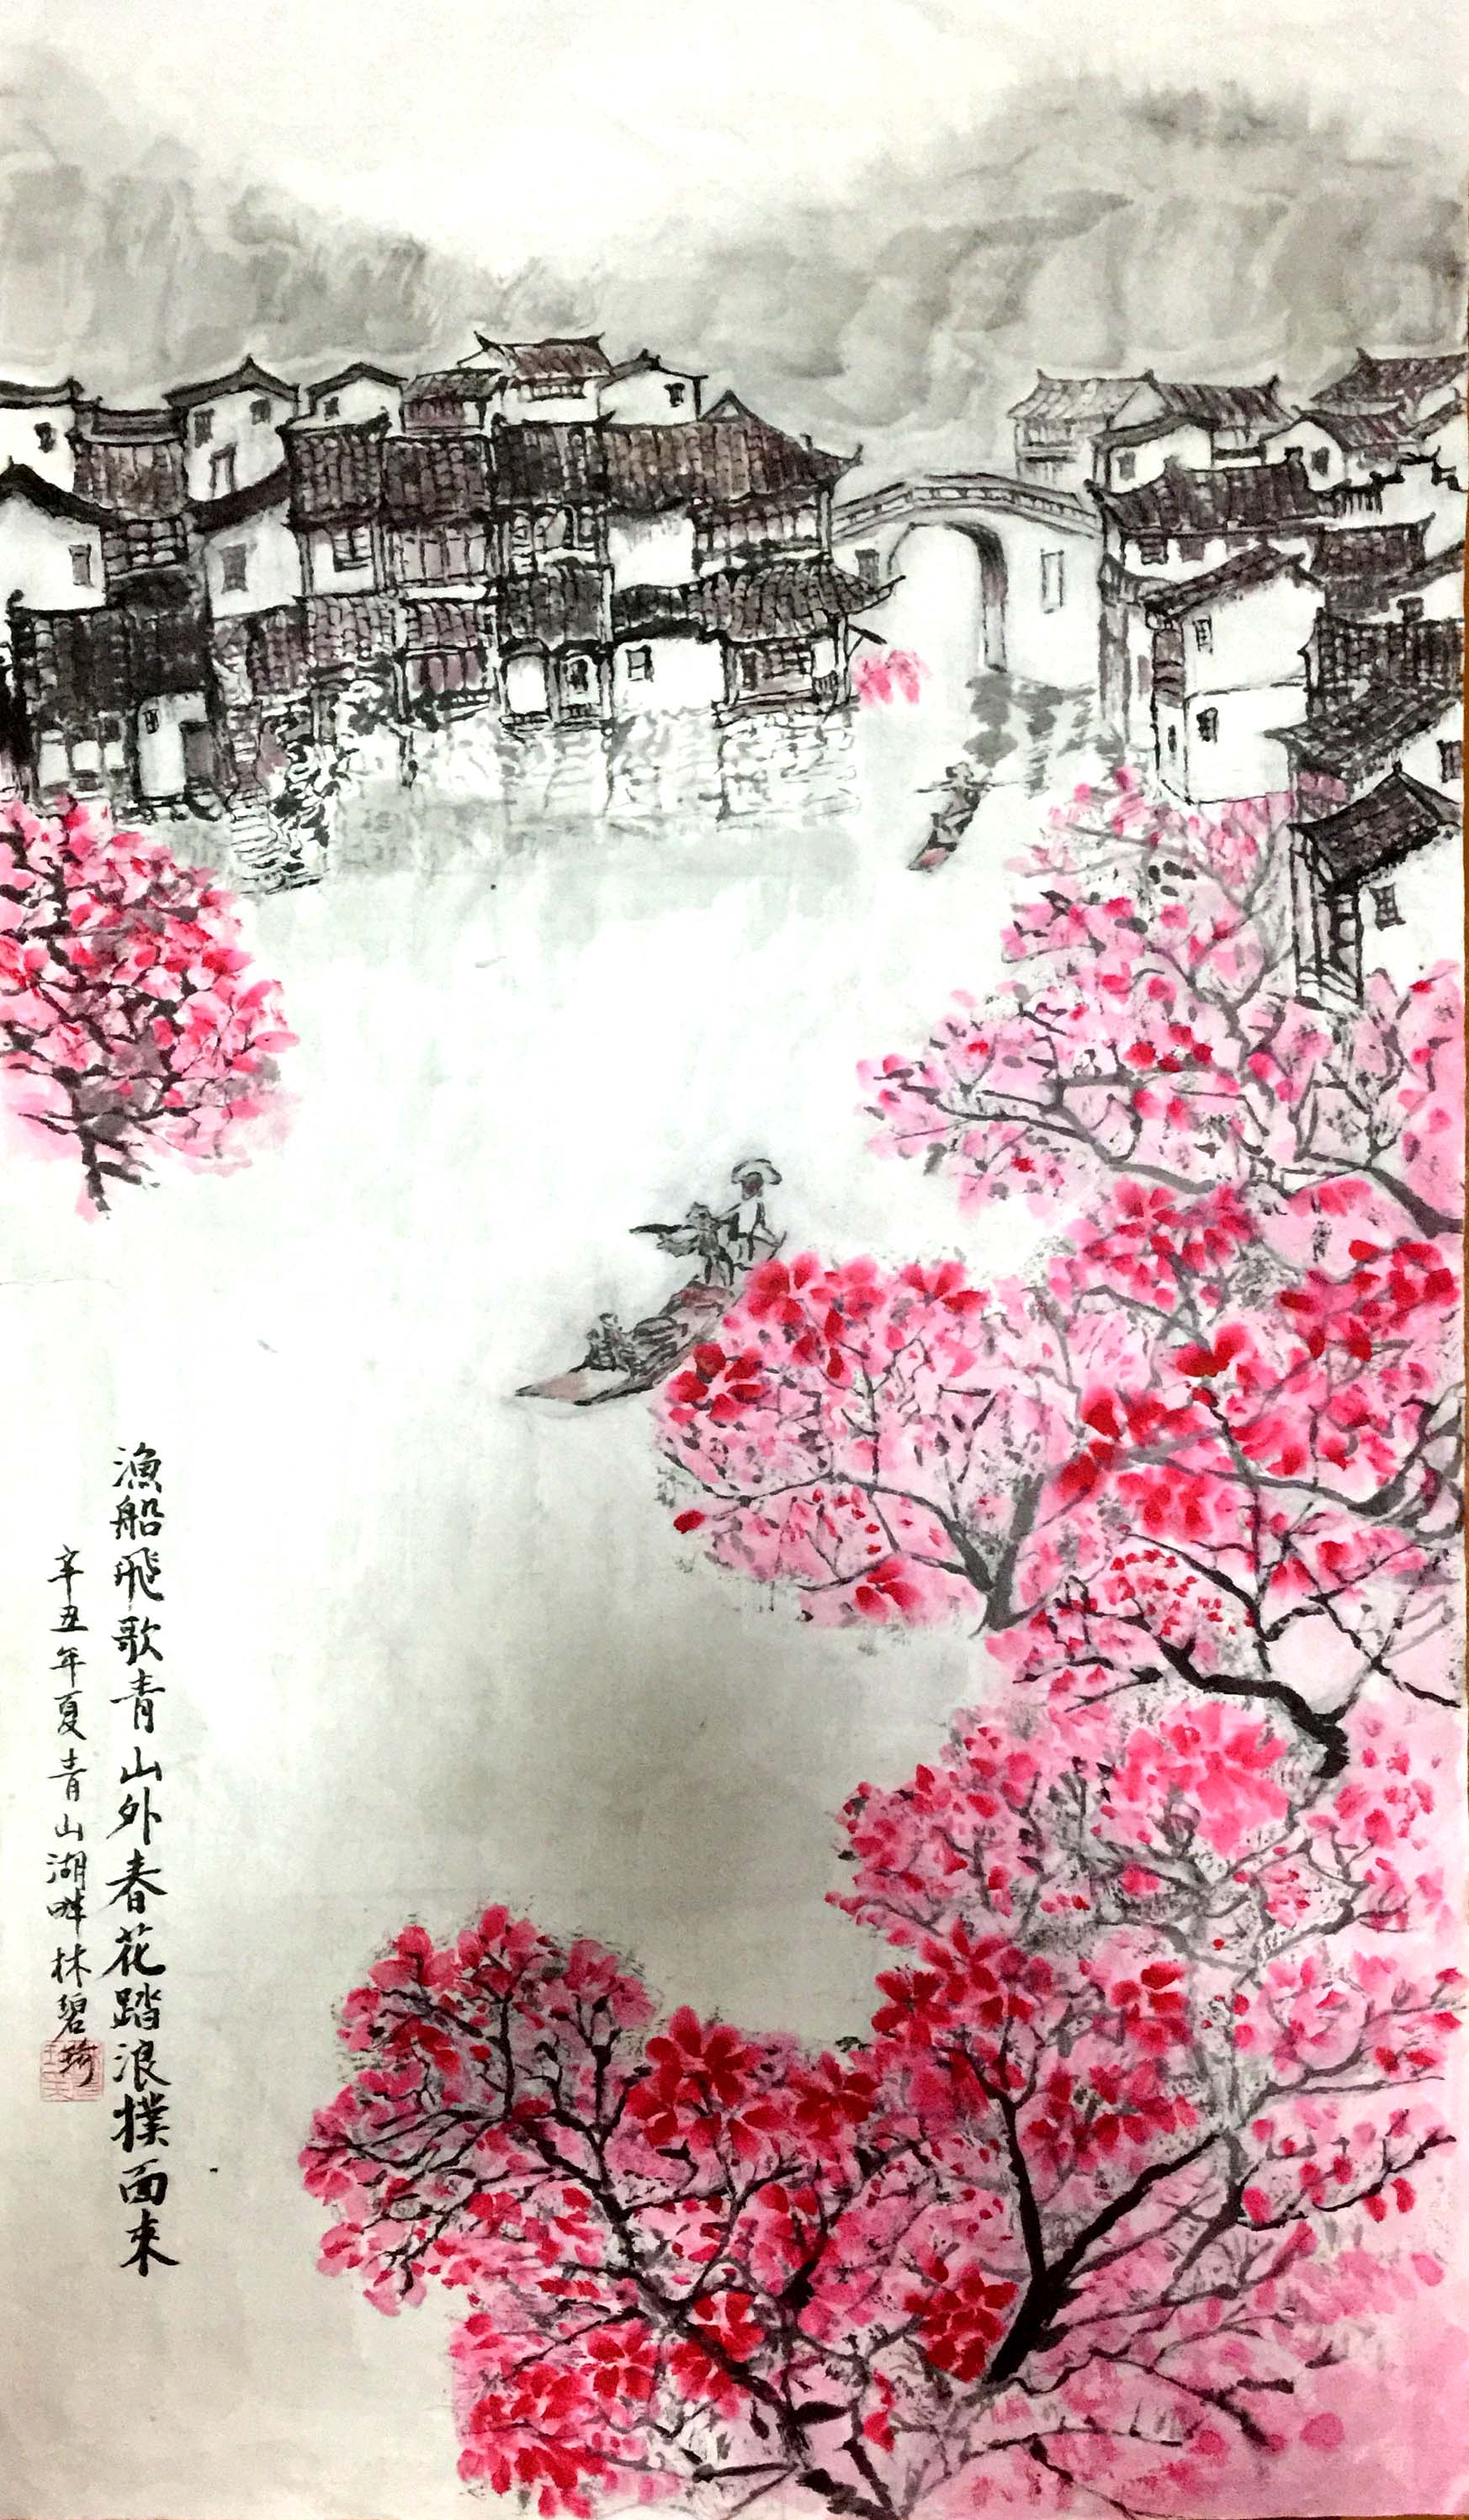 漁船飛歌青山外春花踏浪撲面來
辛丑年夏青山湖畔林碧琦